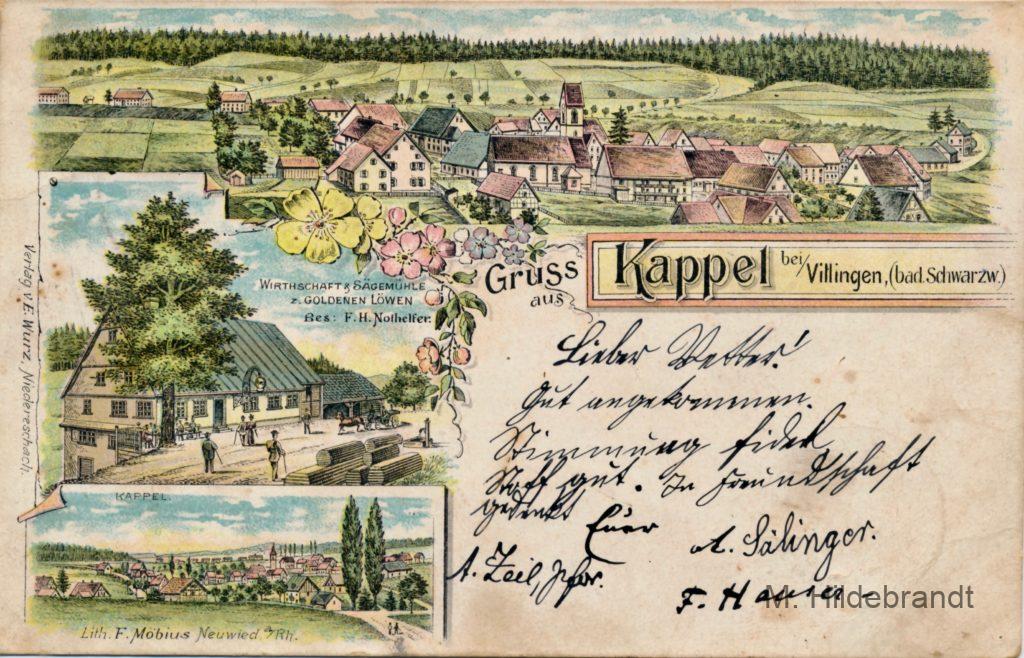 WIRTHSCHAFT & SÄGEMÜHLE
z. GOLDENEN LÖWEN
Bes: F. H. Nothelfer.
Gruss
aus
Kappel bei Villingen, (bad. Schwarzw.)
Verlag v. E. Wurz, Niedereschach.
Lieber Vetter!
Gut angekommen.
Stimmung fidel
Stoff gut. In Freundschaft
gedenkt
Euer
A. Zeil, Pfr.
A. Sälinger.
F. Hauser
KAPPEL.
Lith. F. Möbius Neuwied a/Rh.
M. Hildebrandt